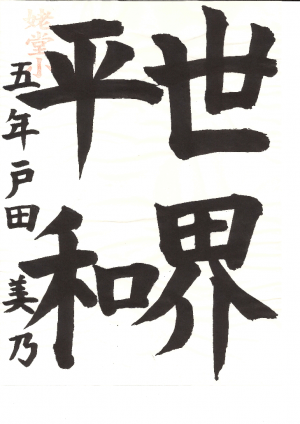 世界
平和
五年戸田美乃
姥堂小